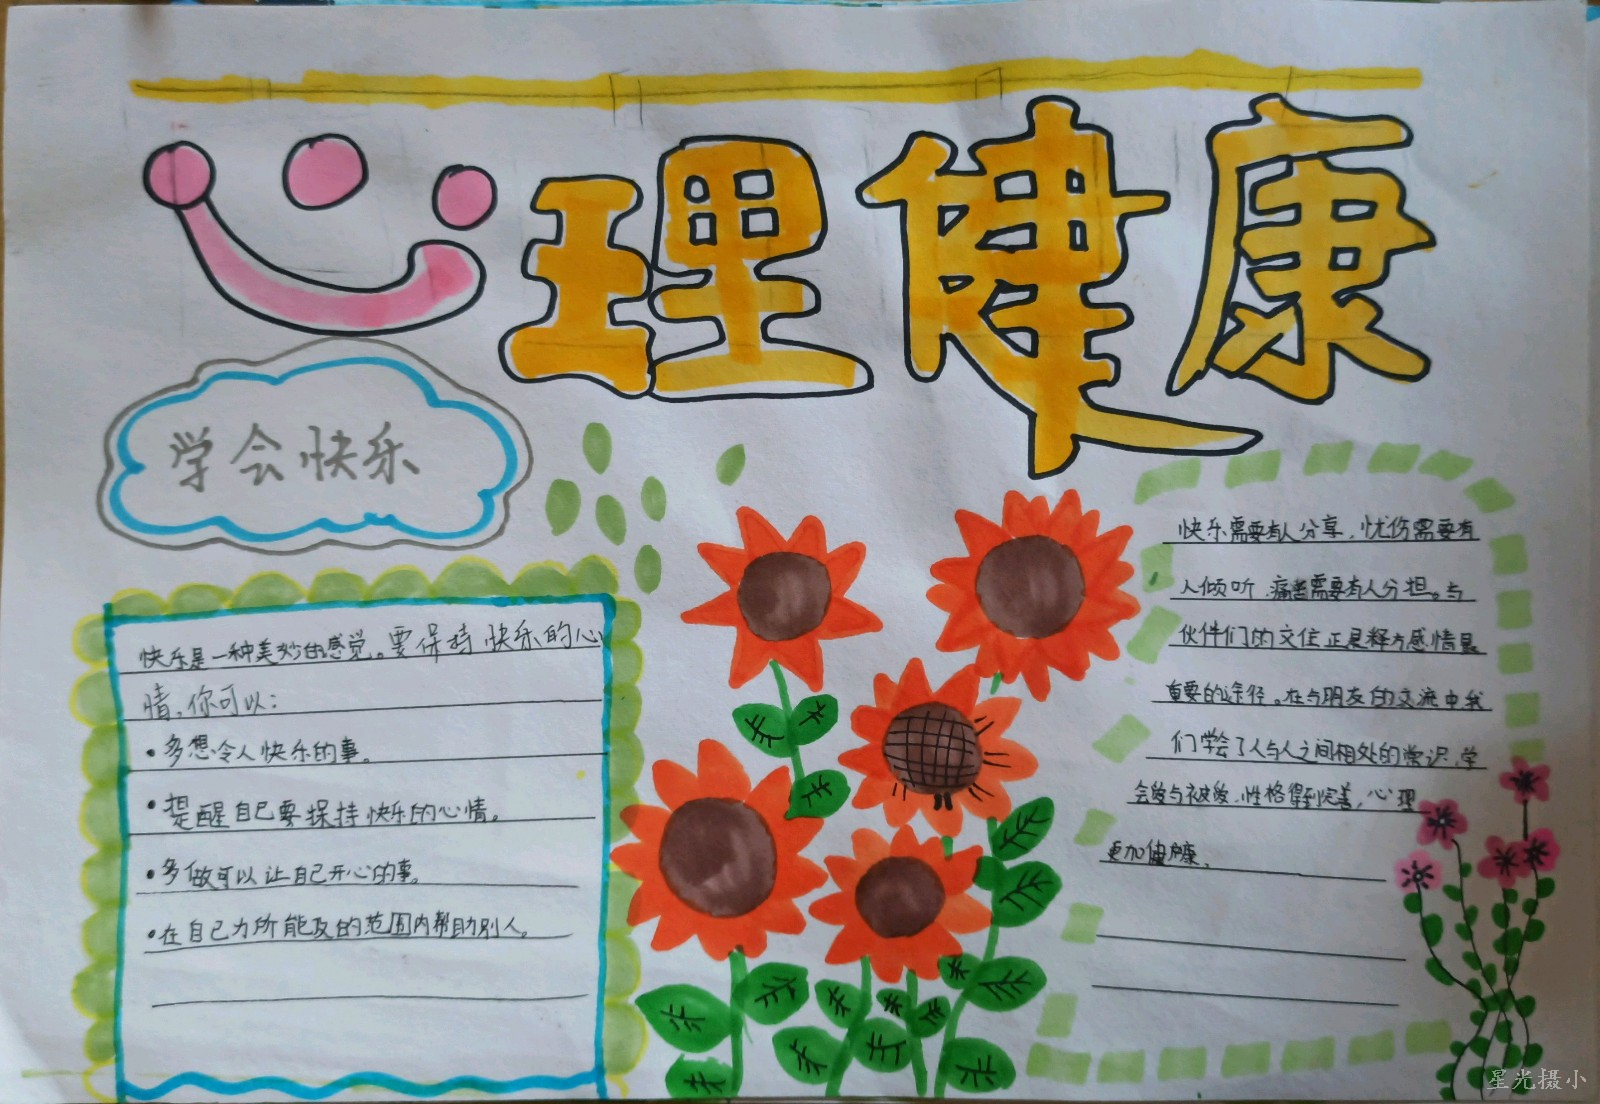 心理健康
学会快乐
快乐是一种美妙的感觉。要保持快乐的心
情，你可以：
•多想令人快乐的事。
•提醒自己要保持快乐的心情。
•多做可以让自己开心的事。
•在自己力所能及的范围内帮助别人。
快乐需要有人分享，忧伤需要有
人倾听，痛苦需要有人分担。与
伙伴们的交往正是释放感情最
重要的途径。在与朋友的交流中我
们学会了人与人之间相处的常识，学
会爱与被爱，性格得到完善，心理
更加健康。
星光摄小